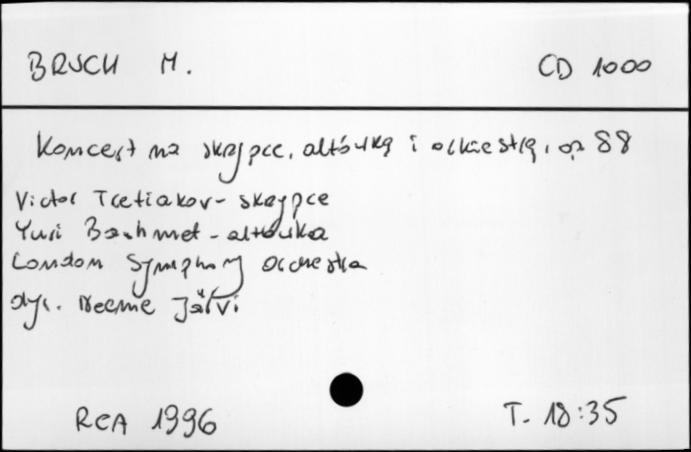 BRUCH M. CD 1000
Koncert na skrzypce, altówkę i orkiestrę, op 88
Victor Tretiakov - skrzypce
Yuri Bashmet - altówka
London Symphony Orchestra
dyr. Neeme Järvi
RCA 1996 T. 18:35